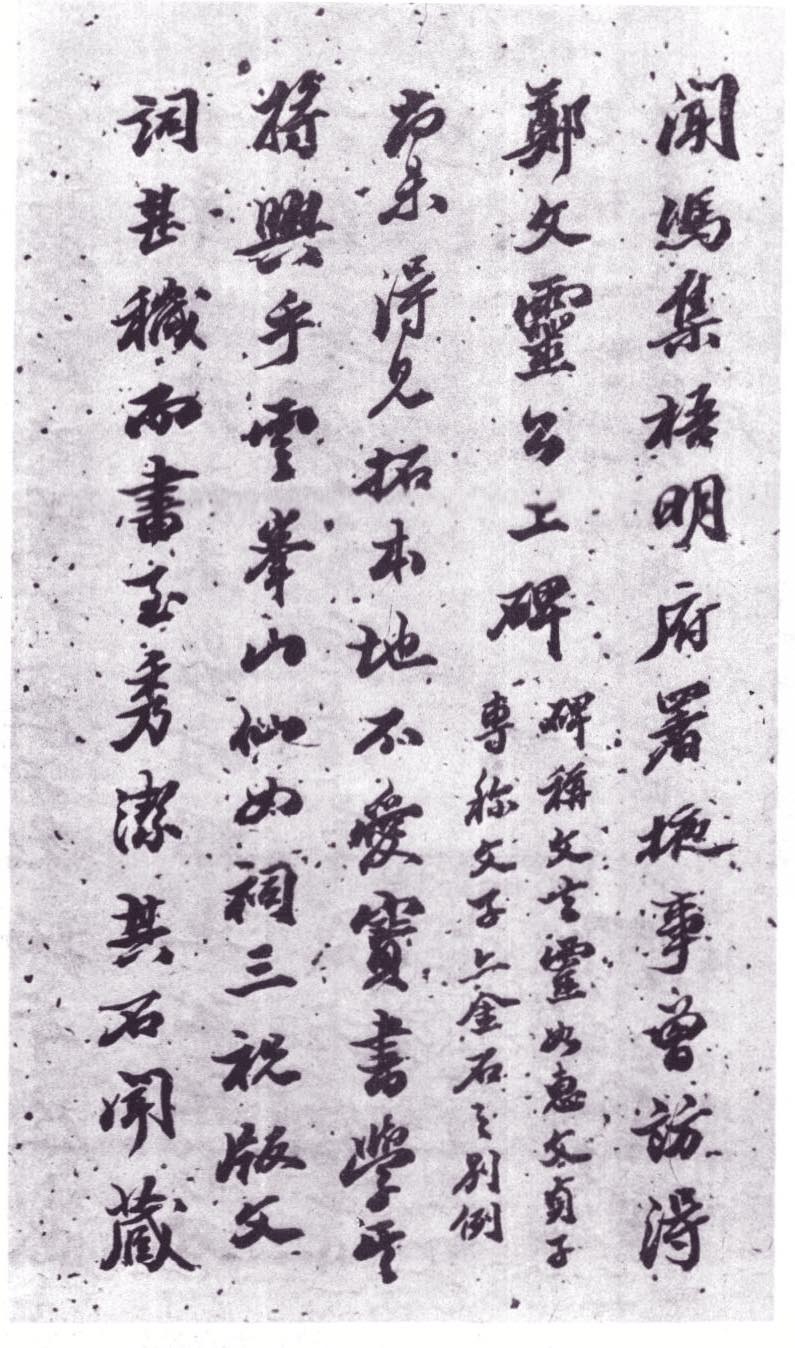 聞馮集梧明府署掖事曾訪得
鄭文靈公上碑
碑稱文去靈如惠文貞子
專称文子亦金石之別例
尚未得見拓本地不愛寶書學其
將興乎雲峯山仙如祠三祝版文
詞甚穢而書至秀潔其石聞藏